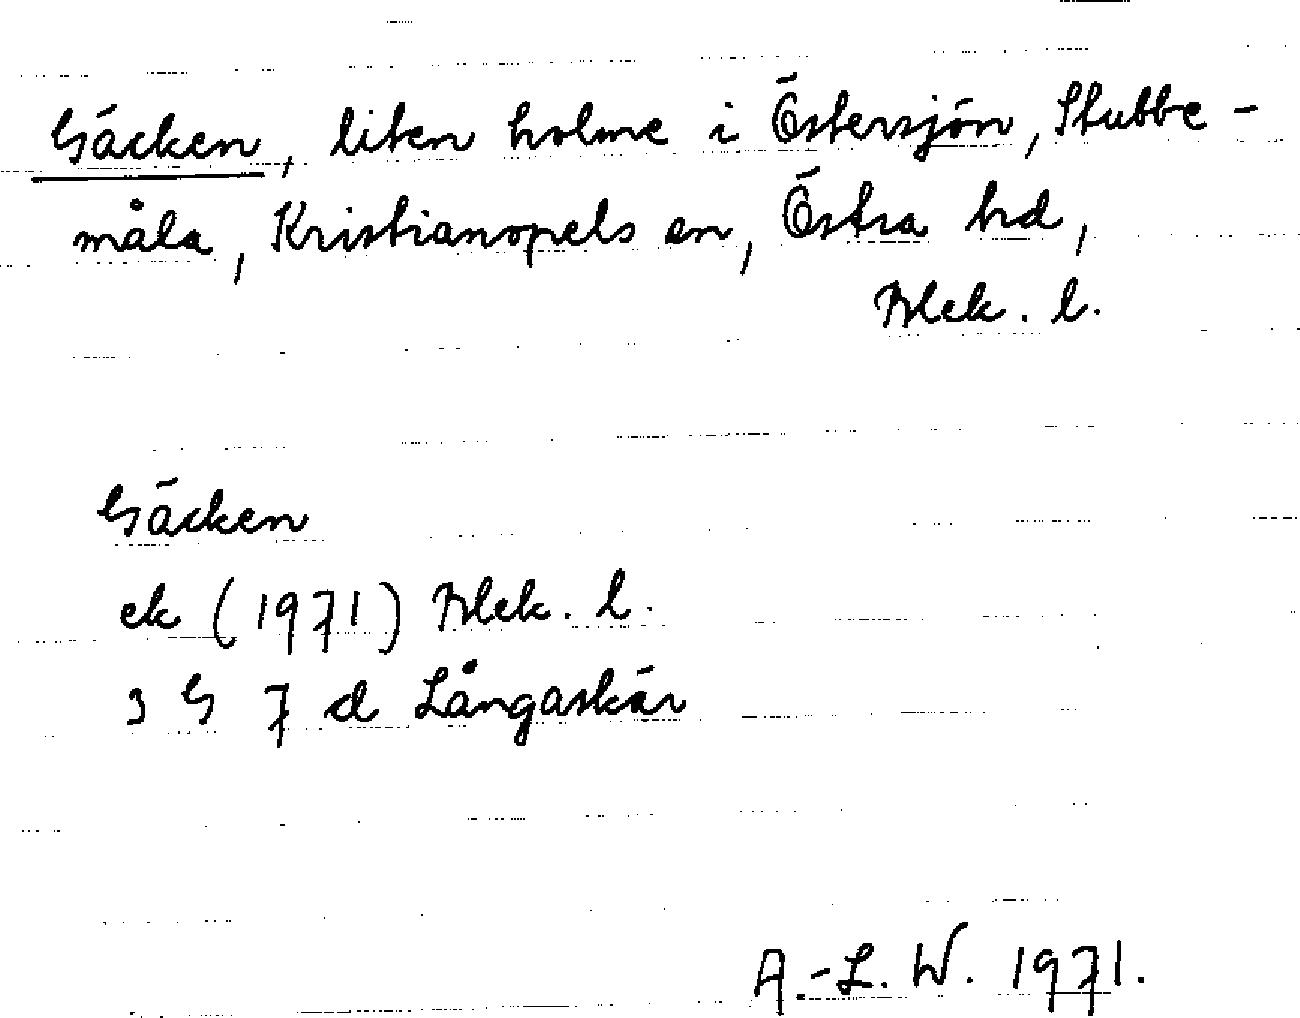 Gäcken, liten holme i Östersjön, Stubbe-
måla, Kristianopels sn, Östra hd,
Blek. l.
Gäcken
ek (1971) Blek. l.
3 G 7 d Långaskär
A.-L. W. 1971.